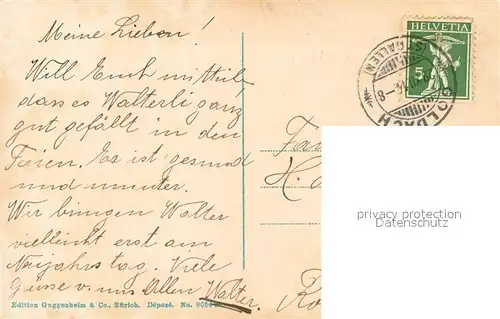 Meine Lieben!
Will Euch mitteil.
das es Walterli ganz
gut gefällt in den
Ferien. Es ist gesund
und munter.
Wir bringen Walter
vielleicht erst am
Neujahrstag. Viele
Grüsse v. uns Allen Walter.
Edition Guggenheim & Co., Zürich. Déposé. No.
HELVETIA
5
GOLDACH
(ST. GALLEN)
Fam
H.
privacy protection
Datenschutz